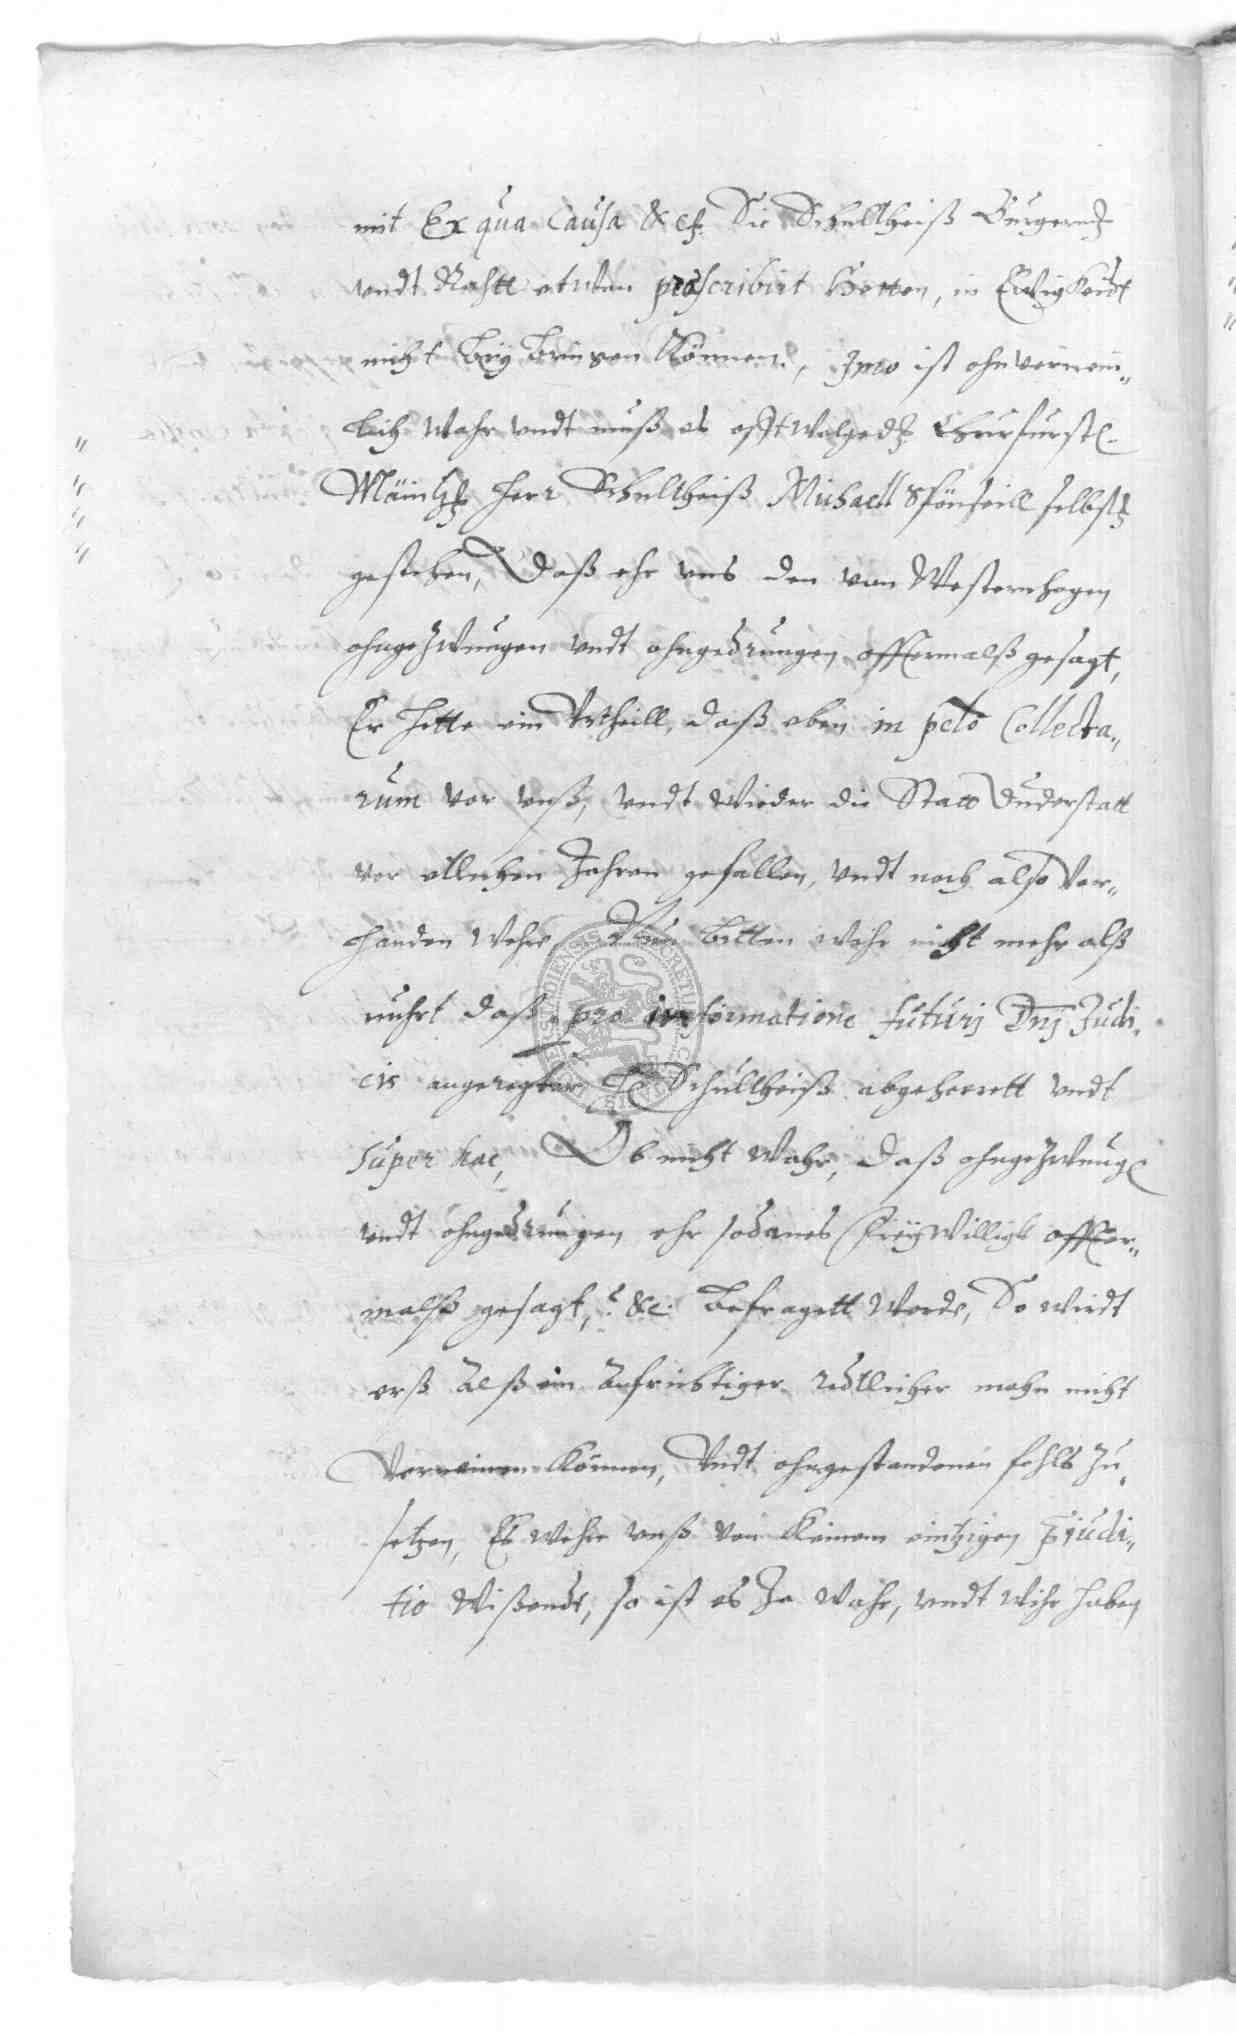 mit Ex qua Causa &c. Sie Schultheiß Burgern
undt Rahtt etwan proscribirt hetten, in Ewigkeidt
nicht bey bringen können, Imo ist ohnvernein„
lich wahr undt muß es offtwolged. Churfürstl.
Mäintz. Herr Schultheiß Michaell selbst
gestehen, Daß ehr uns den von Westernhagen
ohngezwungen undt ohngedrungen offtermalß gesagt,
Er hette ein Urtheill, daß eben in pcto Collecta„
rum vor unß, undt wieder die Statt Duderstatt
vor etlichen Jahren gefallen, undt noch also vor„
handen wehre, Nun bitten wihr nicht mehr alß
nuhr daß pro informatione futurj Dnj Judi„
cis angeregter H. Schultheiß abgehorett undt
super hac, Ob nicht wahr, daß ohngezwung.
undt ohngedrungen ehr sodanes freywilligk offter„
malß gesagt, &c. befragett werde, So wirdt
erß Alß ein Aufrichtiger redtlicher mahn nicht
verneinen können, Undt ohngestandenen fehls zu„
setzen, Es wehre unß von keinem eintzigen pjudi„
tio wißendt, so ist es Ja wahr, undt wihr haben